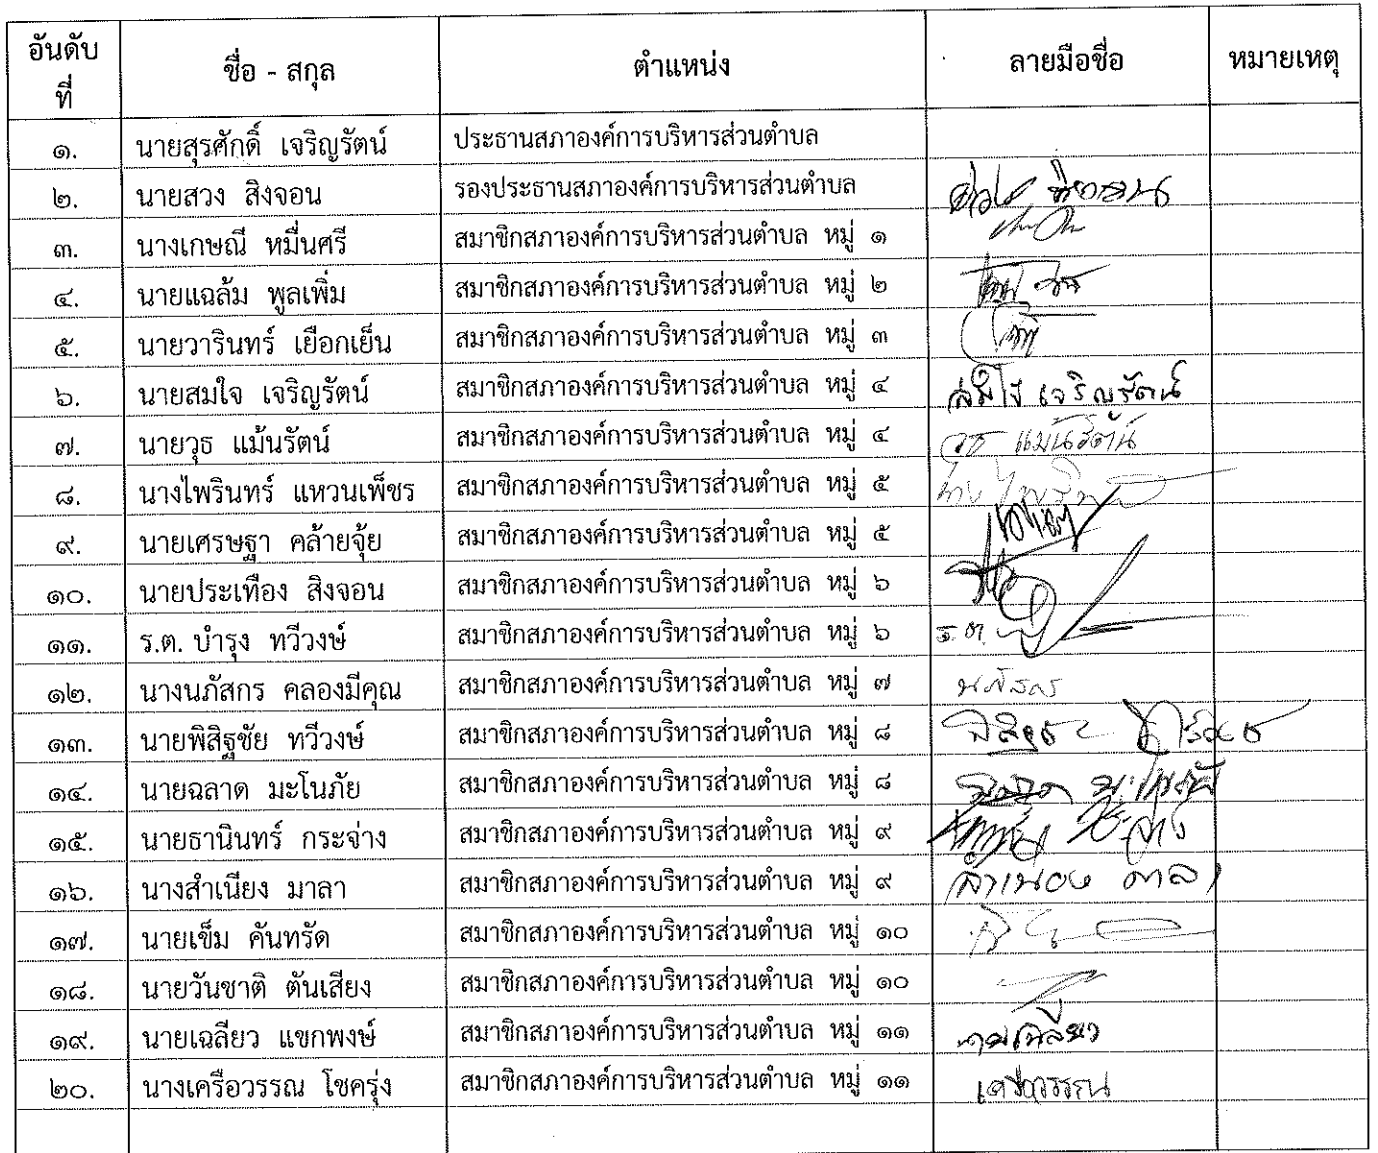 อันดับที่ ชื่อ - สกุล ตำแหน่ง ลายมือชื่อ หมายเหตุ
๑. นายสุรศักดิ์ เจริญรัตน์ ประธานสภาองค์การบริหารส่วนตำบล
๒. นายสวง สิงจอน รองประธานสภาองค์การบริหารส่วนตำบล
๓. นางเกษณี หมื่นศรี สมาชิกสภาองค์การบริหารส่วนตำบล หมู่ ๑
๔. นายแฉล้ม พูลเพิ่ม สมาชิกสภาองค์การบริหารส่วนตำบล หมู่ ๒
๕. นายวารินทร์ เยือกเย็น สมาชิกสภาองค์การบริหารส่วนตำบล หมู่ ๓
๖. นายสมใจ เจริญรัตน์ สมาชิกสภาองค์การบริหารส่วนตำบล หมู่ ๔ สมใจ เจริญรัตน์
๗. นายวุธ แม้นรัตน์ สมาชิกสภาองค์การบริหารส่วนตำบล หมู่ ๔ วุธ แม้นรัตน์
๘. นางไพรินทร์ แหวนเพ็ชร สมาชิกสภาองค์การบริหารส่วนตำบล หมู่ ๕
๙. นายเศรษฐา คล้ายจุ้ย สมาชิกสภาองค์การบริหารส่วนตำบล หมู่ ๕
๑๐. นายประเทือง สิงจอน สมาชิกสภาองค์การบริหารส่วนตำบล หมู่ ๖
๑๑. ร.ต. บำรุง ทวีวงษ์ สมาชิกสภาองค์การบริหารส่วนตำบล หมู่ ๖ ร.ต.
๑๒. นางนภัสกร คลองมีคุณ สมาชิกสภาองค์การบริหารส่วนตำบล หมู่ ๗ นภัสกร
๑๓. นายพิสิฐชัย ทวีวงษ์ สมาชิกสภาองค์การบริหารส่วนตำบล หมู่ ๘
๑๔. นายฉลาด มะโนภัย สมาชิกสภาองค์การบริหารส่วนตำบล หมู่ ๘
๑๕. นายธานินทร์ กระจ่าง สมาชิกสภาองค์การบริหารส่วนตำบล หมู่ ๙
๑๖. นางสำเนียง มาลา สมาชิกสภาองค์การบริหารส่วนตำบล หมู่ ๙ สำเนียง มาลา
๑๗. นายเข็ม คันทรัด สมาชิกสภาองค์การบริหารส่วนตำบล หมู่ ๑๐
๑๘. นายวันชาติ ตันเสียง สมาชิกสภาองค์การบริหารส่วนตำบล หมู่ ๑๐
๑๙. นายเฉลียว แขกพงษ์ สมาชิกสภาองค์การบริหารส่วนตำบล หมู่ ๑๑ นายเฉลียว
๒๐. นางเครือวรรณ โชครุ่ง สมาชิกสภาองค์การบริหารส่วนตำบล หมู่ ๑๑ เครือวรรณ